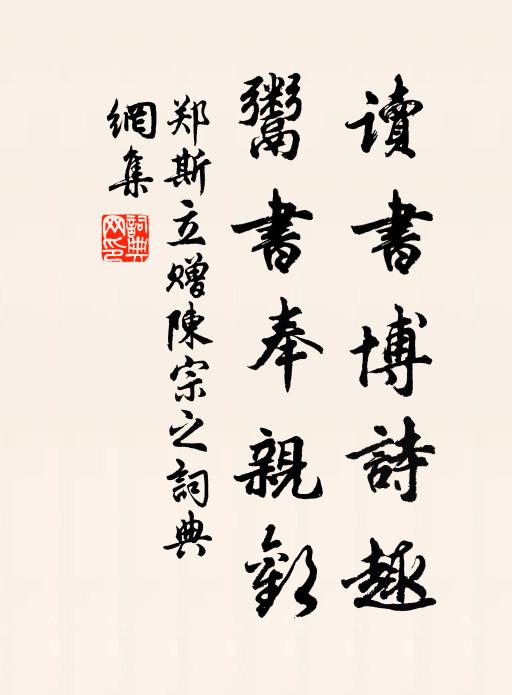 讀書博詩趣
鬻書奉親歡
郑斯立赠陳宗之詞典
網集
詞典
网印